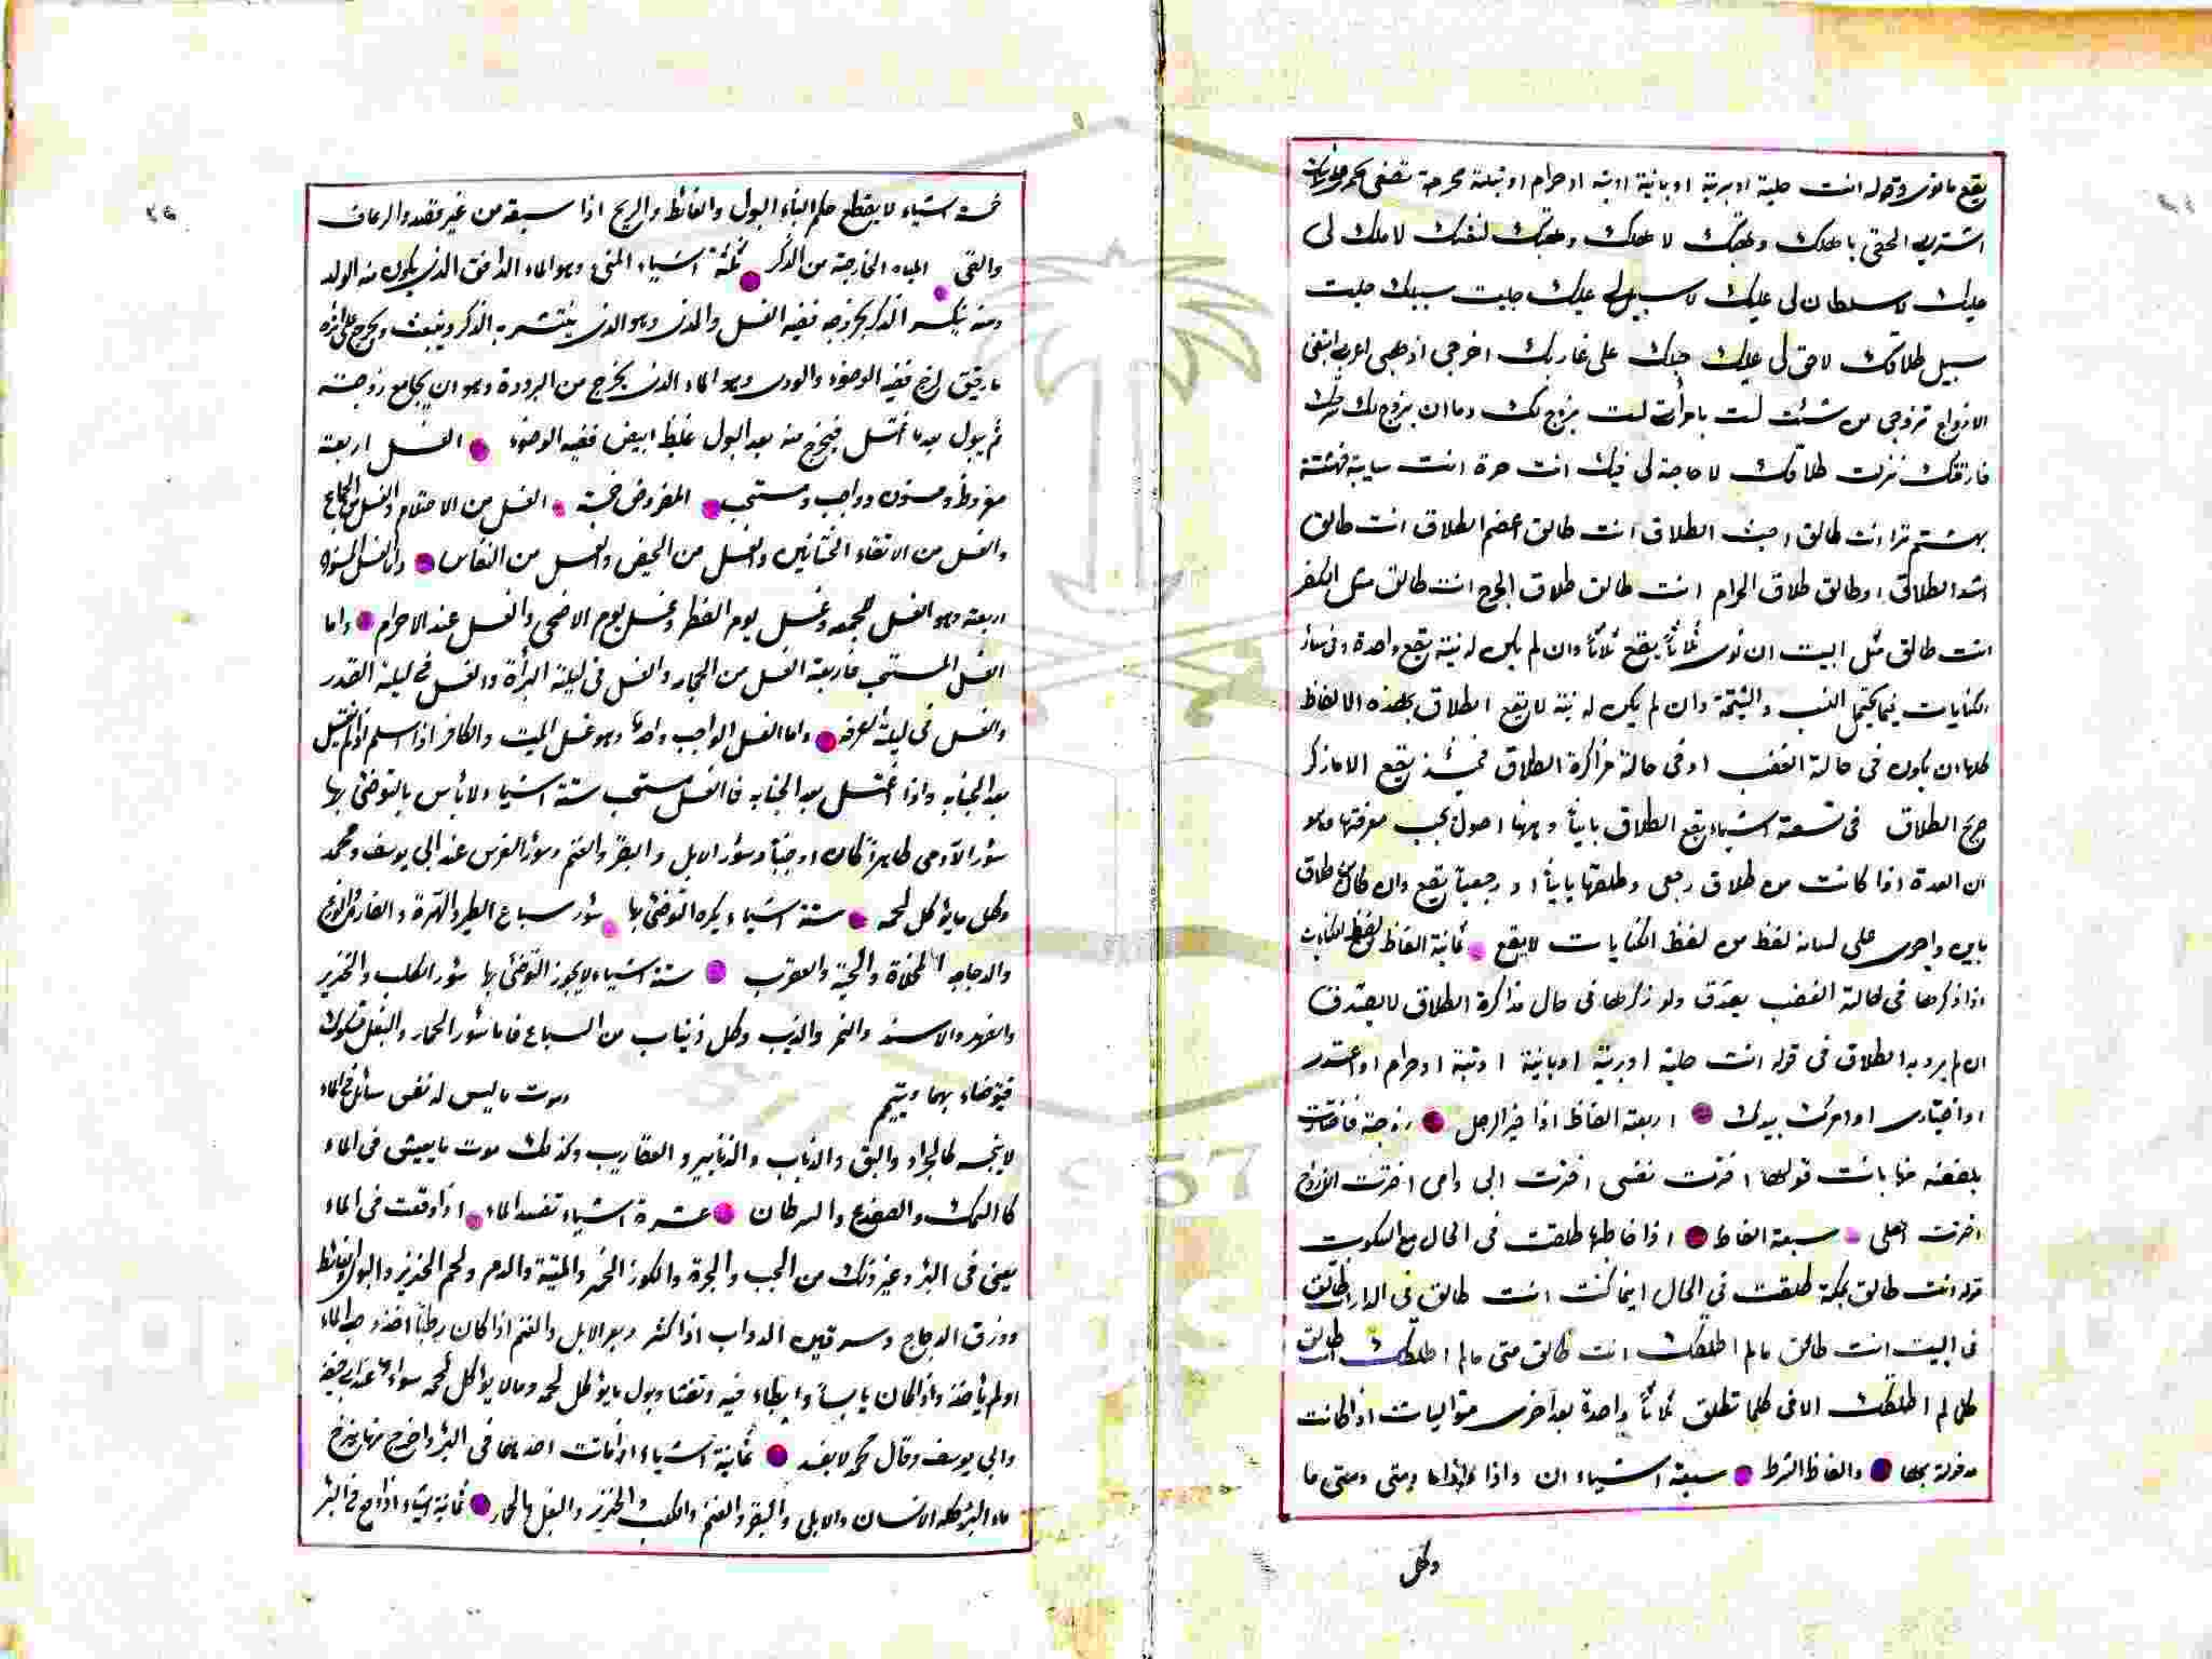 يقع ما نوى وقوله انت خلية او برية او باينة او بتة او حرام او بتلة محرجة
اشتريه الحقي باهلك وهبتك لاهلك وهبتك لنفسك لا ملك لي
عليك لا سلطان لي عليك لا سبيل لي عليك خليت سبيلك خليت
سبيل طلاقك لا حق لي عليك حبلك على غاربك اخرجي اذهبي اعزبي ابتغي
الازواج تزوجي من شئت لست بامرأت لست بزوج لك وما ان بزوج لك
فارقتك طلاقك لا حاجة لي فيك انت حرة انت سايبة
بهشتم ترا انت طالق اخبث الطلاق انت طالق اعظم الطلاق انت طالق
اشد الطلاق او طالق طلاق الحرام انت طالق طلاق الحرج انت طالق مثل الكفر
انت طالق مثل البيت ان نوى ثلاثاً يقع ثلاثاً وان لم يكن له نية يقع واحدة وفي سائر
الكنايات فيما يحتمل السب والشتمة وان لم يكن له نية لا يقع الطلاق بهذه الالفاظ
كلها ان يكون في حالة الغضب او في حالة مذاكرة الطلاق فحينئذ يقع الا ما ذكر
صريح الطلاق في تسعة اشياء يقع الطلاق بايناً وههنا اصول يجب معرفتها وهو
ان العدة اذا كانت من طلاق رجعي وطلقها بايناً او رجعياً يقع وان كان من طلاق
باين واجرى على لسانه لفظ من لفظ الكنايات لا يقع ثمانية الفاظ من لفظ الكنايات
اذا ذكرها في حالة الغضب يصدق ولو ذكرها في حال مذاكرة الطلاق لا يصدق
ان لم يرد به الطلاق في قوله انت خلية او برية او باينة او بتة او حرام او اعتدى
او اختارى او امرك بيدك اربعة الفاظ اذا خير الرجل زوجته فاختارت
بلفظة منها بانت قولها اخترت نفسي اخترت ابي وامي اخترت الازواج
اخترت اهلي سبعة الفاظ اذا خاطبها طلقت في الحال مع السكوت
قوله انت طالق بمكة طلقت في الحال اينما كنت انت طالق في الدار انت طالق
في البيت انت طالق ما لم اطلقك انت طالق متى ما لم اطلقك انت طالق
كلما لم اطلقك الا في كلما تطلق ثلاثاً واحدة بعد اخرى متواليات اذا كانت
مدخولة بها والفاظ الشرط سبعة اشياء ان واذا واذا ما ومتى ومتى ما
وكل
خمسة اشياء لا يقطع حكم البناء البول والغائط والريح اذا سبقه من غير قصد والرعاف
والقي المياه الخارجة من الذكر ثلثة اشياء المني وهو الماء الدافق الذي يكون منه الولد
ومنه ينكسر الذكر بخروجه ففيه الغسل والمذي وهو الذي ينتشر به الذكر وينبعث ويخرج على اثره
ما رقيق لزج ففيه الوضوء والودي وهو الماء الذي يخرج من البرودة وهو ان يجامع زوجته
ثم يبول بعد ما اغتسل فيخرج منه بعد البول غليظ ابيض ففيه الوضوء الغسل اربعة
مفروض ومسنون وواجب ومستحب المفروض خمسة الغسل من الاحتلام والغسل من الجماع
والغسل من الالتقاء الختانين والغسل من الحيض والغسل من النفاس واما الغسل المسنون
اربعة وهو الغسل الجمعه وغسل يوم الفطر وغسل يوم الاضحى والغسل عند الاحرام واما
الغسل المستحب فاربعة الغسل من الحجامه والغسل في ليلة البرأة والغسل في ليلة القدر
والغسل في ليلة العرفه واما الغسل الواجب واحد وهو غسل الميت والكافر اذا اسلم اذا لم يغتسل
بعد الجنابه واذا اغتسل بعد الجنابه فالغسل مستحب ستة اشياء لا بأس بالتوضئ بها
سؤر الآدمي طاهراً كان او جنباً وسؤر الابل والبقر والغنم وسؤر الفرس عند ابي يوسف ومحمد
وكل ما يؤكل لحمه ستة اشياء يكره التوضئ بها سؤر سباع الطير والهرة والفارة والوزغ
والدجاجه المخلاة والحية والعقرب ستة اشياء لا يجوز التوضئ بها سؤر الكلب والخنزير
والفهد والاسد والنمر والذيب وكل ذي ناب من السباع فاما سؤر الحمار والبغل مشكوك
فيتوضاء بهما ويتيمم وموت ما ليس له نفس سائل في الماء
لا ينجسه كالجراد والبق والذباب والزنابير والعقاريب وكذلك موت ما يعيش في الماء
كالسمك والضفدع والسرطان عشرة اشياء تفسد الماء اذا وقعت في الماء
يعني في البئر وغير ذلك من الجب والجرة والكوز الخمر والميتة والدم ولحم الخنزير والبول والغائط
وذرق الدجاج وسرقين الدواب اذا كثر وبعر الابل والغنم اذا كان رطباً اخذه صب الماء
اولم يأخذه واذا كان يابساً وابطاء فيه وتفتتا وبول ما يؤكل لحمه وما لا يؤكل لحمه سواء عند ابي حنيفة
وابي يوسف وقال محمد لا يفسد ثمانية اشياء اذا ماتت احديها في البئر واخرج منها ينزح
ماء البئر كله الانسان والابل والبقر والغنم والكلب والخنزير والبغل والحمار ثمانية اشياء اذا وقع في البئر